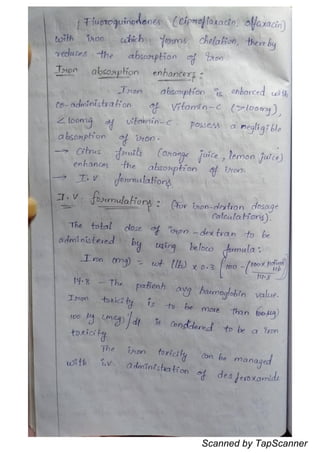 ( Fluoroquinolones (ciprofloxacin, ofloxacin)
with iron which forms chelation, thereby
reduces the absorption of iron.
Iron absorption enhancers :
Iron absorption is enhanced with
co-administration of Vitamin-C (>100mg),
<100mg of vitamin-C possess a negligible
absorption of iron.
→ Citrus fruits (orange juice, lemon juice)
enhances the absorption of iron.
→ I.V formulations
I.V. formulations : (for iron-dextran dosage
calculations).
The total dose of iron-dextran to be
administered by using below formula :
Iron (mg) = wt (lb) x 0.3 [100 - (100 x patient Hb
14.8
14.8 - The patient avg haemoglobin value.
Iron toxicity is to be more than
100 µg (mcg)/dl is considered to be a iron
toxicity.
The iron toxicity can be managed
with i.v. administration of desferoxamide
Scanned by TapScanner